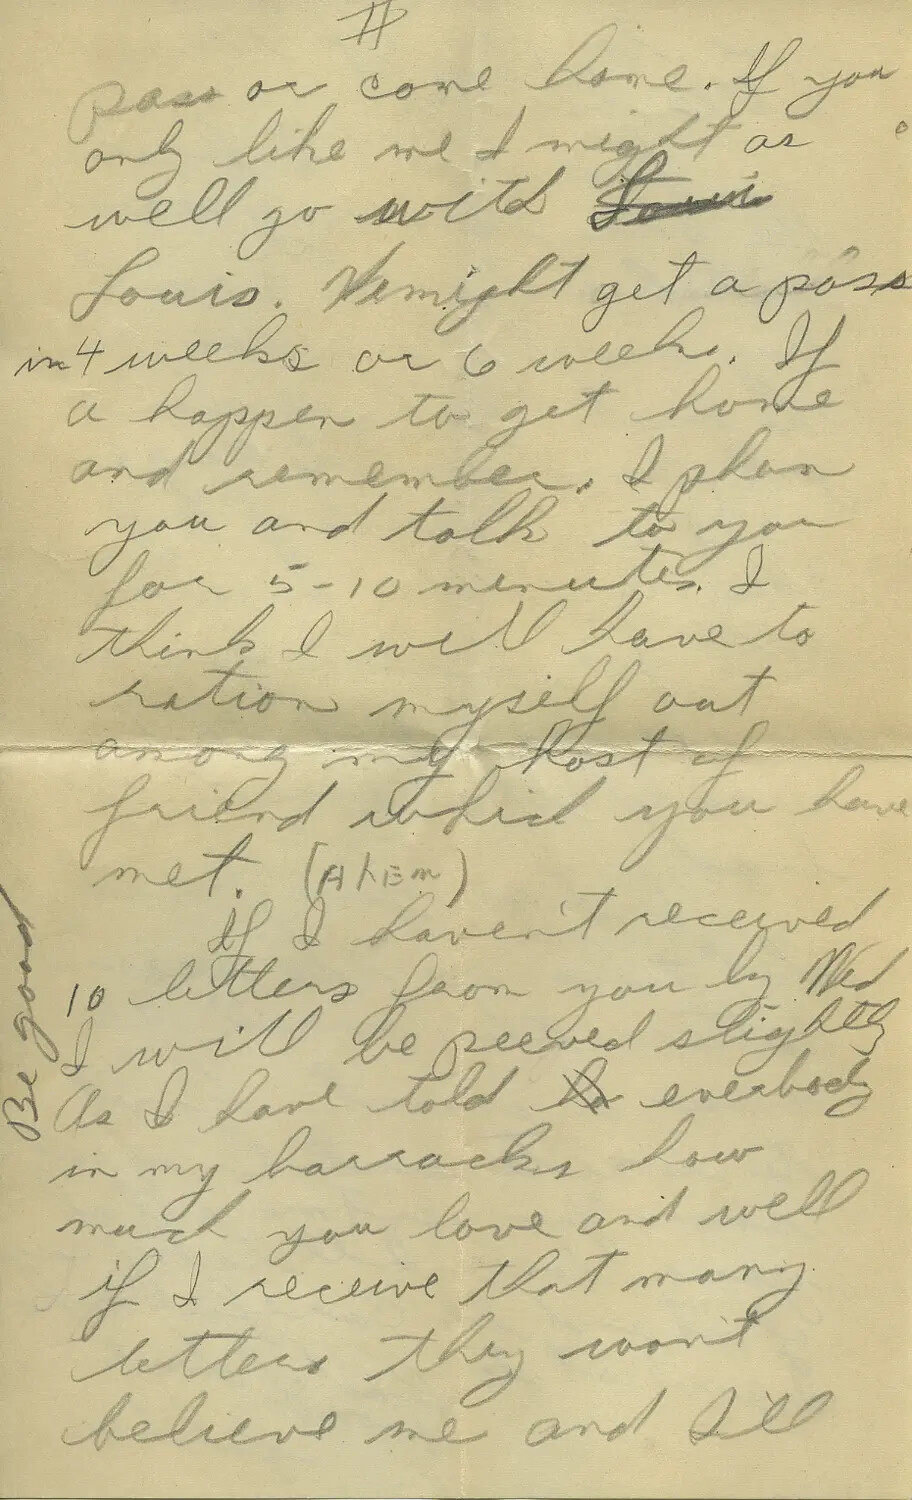 II
pass or come home. If you
only like me I might as
well go with Louis
Louis. We might get a pass
in 4 weeks or 6 weeks. If
a happen to get home
and remember. I phon
you and talk to you
for 5-10 minutes. I
think I will have to
ration myself out
among my host of
friend which you have
met. (AhEm)
If I haven't received
10 letters from you by Wed
I will be peeved slightly
As I have told everbody
in my barracks how
much you love and well
if I receive that many
letters they won't
believe me and I'll
Be good